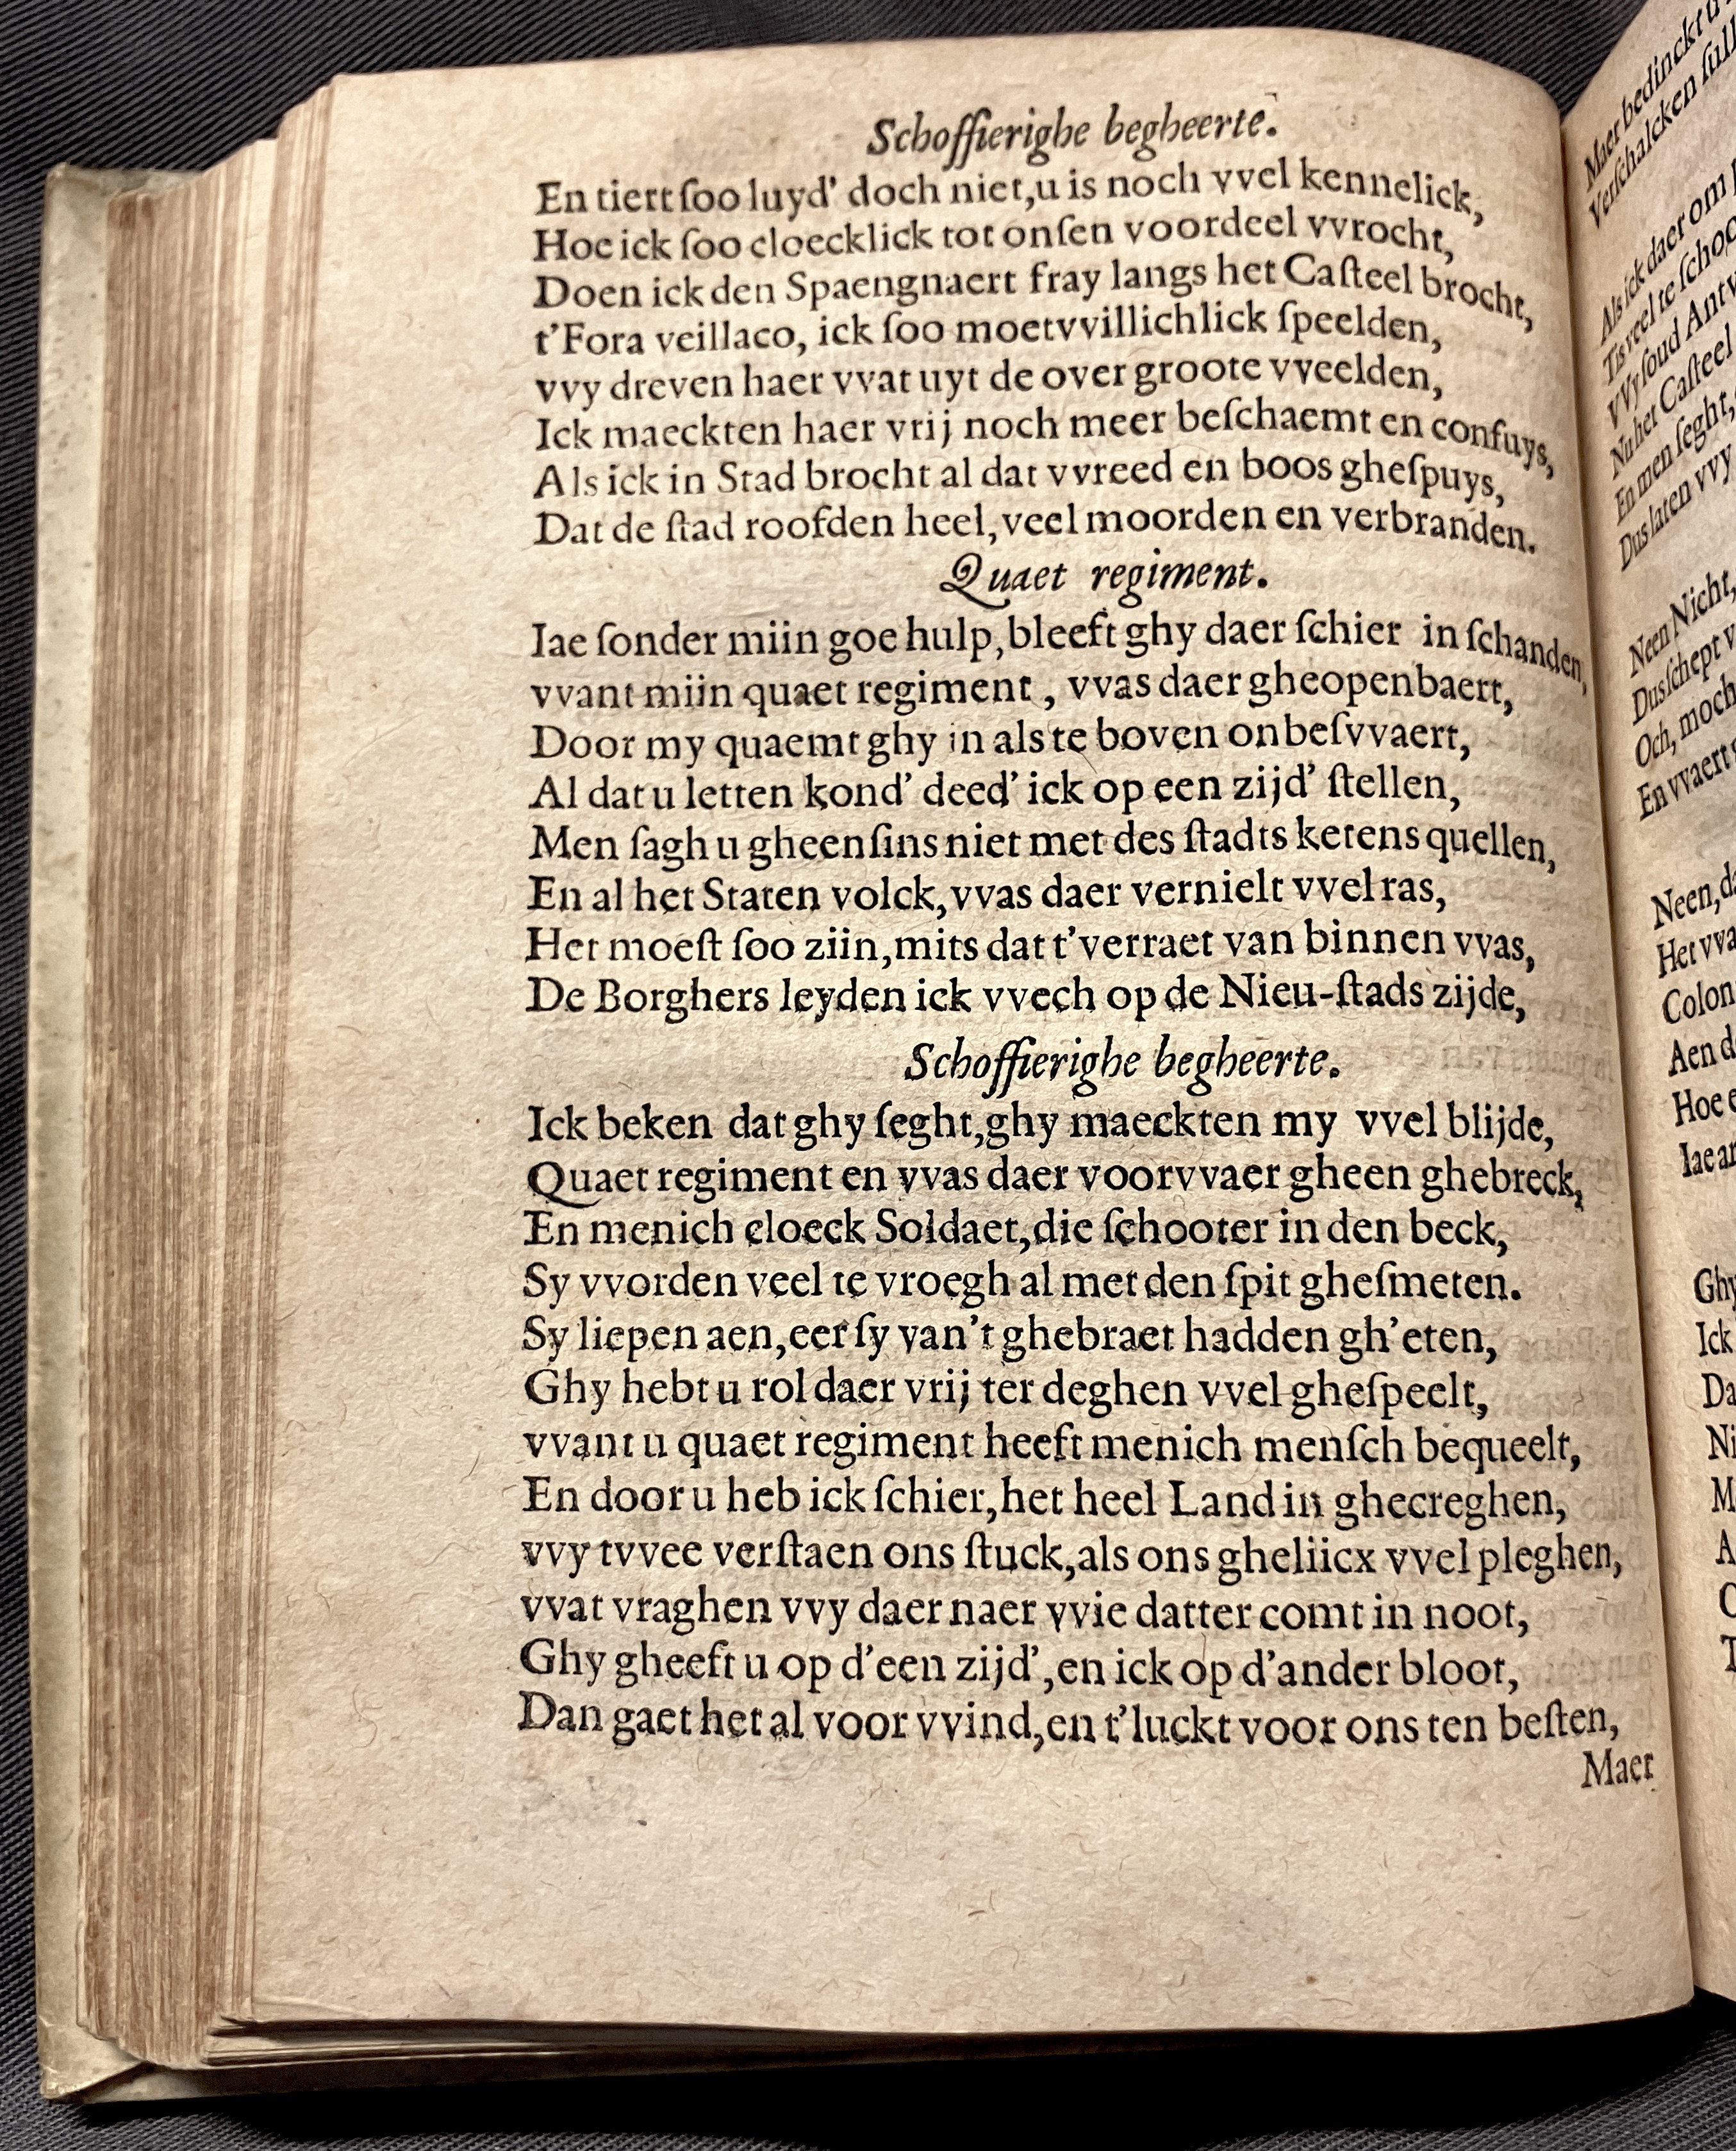 Schoffierighe begheerte.
En tiert ſoo luyd' doch niet,u is noch vvel kennelick,
Hoe ick ſoo cloecklick tot onſen voordeel vvrocht,
Doen ick den Spaengnaert fray langs het Caſteel brocht,
t'Fora veillaco, ick ſoo moetvvillichlick ſpeelden,
vvy dreven haer vvat uyt de over groote vveelden,
Ick maeckten haer vrij noch meer beſchaemt en confuys,
Als ick in Stad brocht al dat vvreed en boos gheſpuys,
Dat de ſtad roofden heel,veel moorden en verbranden.
Quaet regiment.
Iae ſonder miin goe hulp,bleeft ghy daer ſchier in ſchanden,
vvant miin quaet regiment, vvas daer gheopenbaert,
Door my quaemt ghy in als te boven onbeſvvaert,
Al dat u letten kond' deed' ick op een zijd' ſtellen,
Men ſagh u gheenſins niet met des ſtadts ketens quellen,
En al het Staten volck,vvas daer vernielt vvel ras,
Het moeſt ſoo ziin,mits dat t'verraet van binnen vvas,
De Borghers leyden ick vvech op de Nieu-ſtads zijde,
Schoffierighe begheerte.
Ick beken dat ghy ſeght,ghy maeckten my vvel blijde,
Quaet regiment en vvas daer voorvvaer gheen ghebreck,
En menich cloeck Soldaet,die ſchooter in den beck,
Sy vvorden veel te vroegh al met den ſpit gheſmeten.
Sy liepen aen,eer ſy van't ghebraet hadden gh'eten,
Ghy hebt u rol daer vrij ter deghen vvel gheſpeelt,
vvant u quaet regiment heeft menich menſch bequeelt,
En door u heb ick ſchier,het heel Land in ghecreghen,
vvy tvvee verſtaen ons ſtuck,als ons gheliicx vvel pleghen,
vvat vraghen vvy daer naer vvie datter comt in noot,
Ghy gheeft u op d'een zijd',en ick op d'ander bloot,
Dan gaet het al voor vvind,en t'luckt voor ons ten beſten,
Maer
Maer bedinckt
Verſchalcken
Als ick daer om
Tis veel te
VVy ſoud
Nu het Caſteel
En men ſeght,
Dus laten vvy
Neen Nicht,
Dus ſchept
Och, moch
En vvaert
Neen,
Het
Colon
Aen
Hoe
Iae
Ghy
Ick